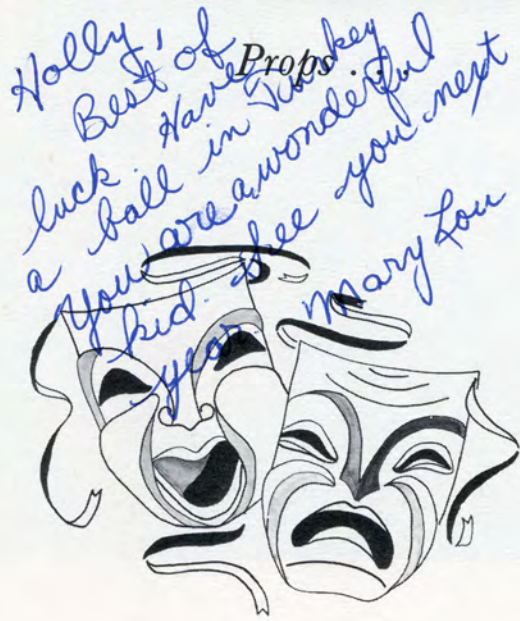 Props . . .
Holly,
Best of
luck. Have
a ball in Turkey
You are a wonderful
kid. See you next
year. Mary Lou